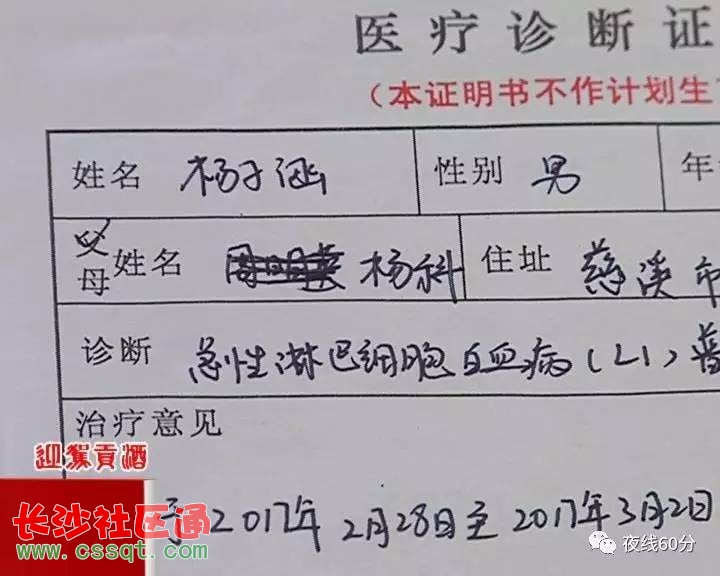 医疗诊断证
（本证明书不作计划生
姓名 杨子涵 性别 男 年
父母姓名 杨科 住址 慈溪市
诊断 急性淋巴细胞白血病（L1）普
治疗意见
迎驾贡酒
于2017年2月28日至2017年3月2日
长沙社区通
www.cssqt.com
夜线60分